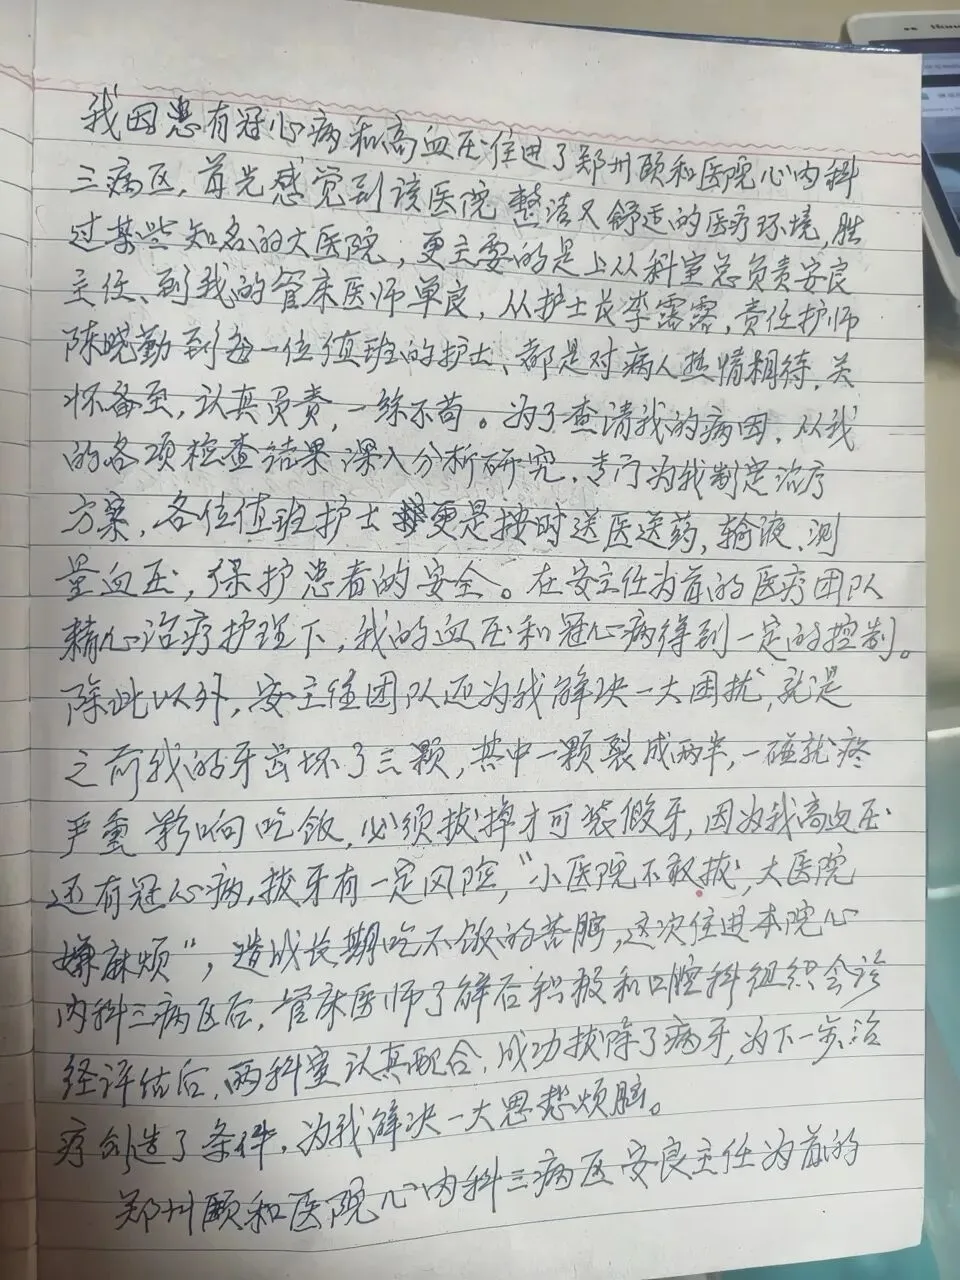 我因患有冠心病和高血压住进了郑州颐和医院心内科
三病区,首先感觉到该医院整洁又舒适的医疗环境,胜
过某些知名的大医院,更主要的是上从科室总负责安良
主任、到我的管床医师单良,从护士长李露露,责任护师
陈晓勤到每一位值班的护士、都是对病人热情相待,关
怀备至,认真负责,一丝不苟。为了查清我的病因,从我
的各项检查结果深入分析研究,专门为我制定治疗
方案,各位值班护士更是按时送医送药,输液、测
量血压,保护患者的安全。在安主任为首的医疗团队
精心治疗护理下,我的血压和冠心病得到一定的控制。
除此以外,安主任团队还为我解决一大困扰,就是
之前我的牙齿坏了三颗,其中一颗裂成两半,一碰就疼
严重影响吃饭,必须拔掉才可装假牙,因为我高血压
还有冠心病,拔牙有一定风险,“小医院不敢拔,大医院
嫌麻烦”,造成长期吃不饭的苦脑,这次住进本院心
内科三病区后,管床医师了解后积极和口腔科组织会诊
经评估后,两科室认真配合,成功拔除了病牙,为下一步治
疗创造了条件,为我解决一大思想烦脑。
郑州颐和医院心内科三病区安良主任为首的